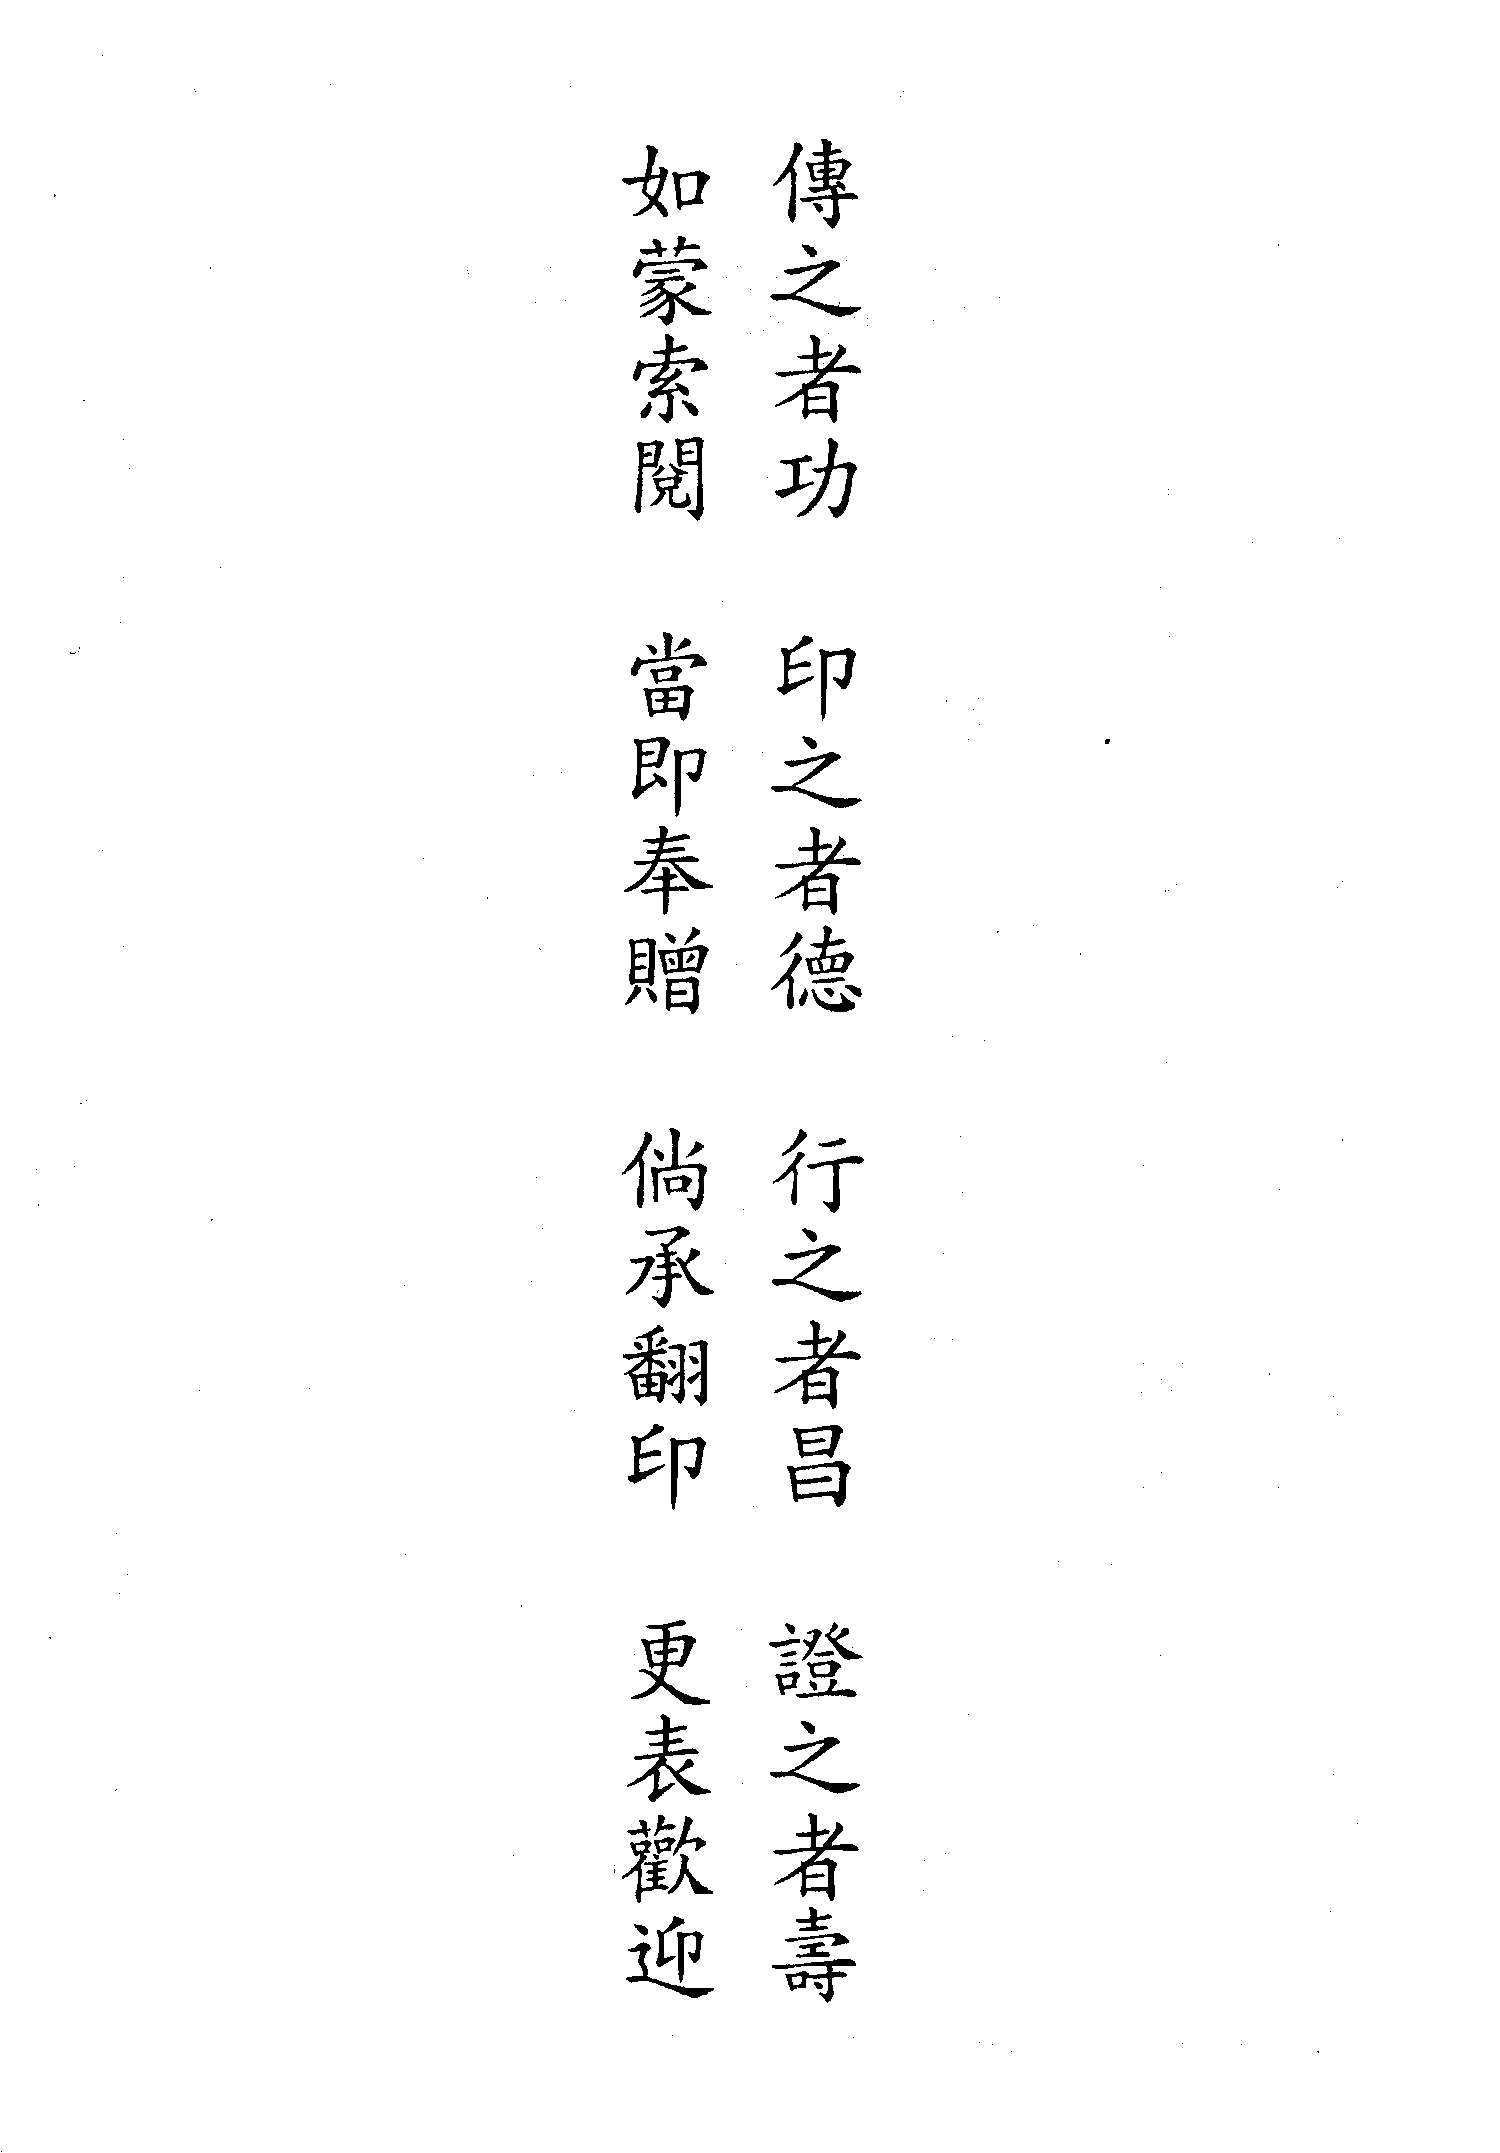 傳之者功　印之者德　行之者昌　證之者壽
如蒙索閱　當即奉贈　倘承翻印　更表歡迎